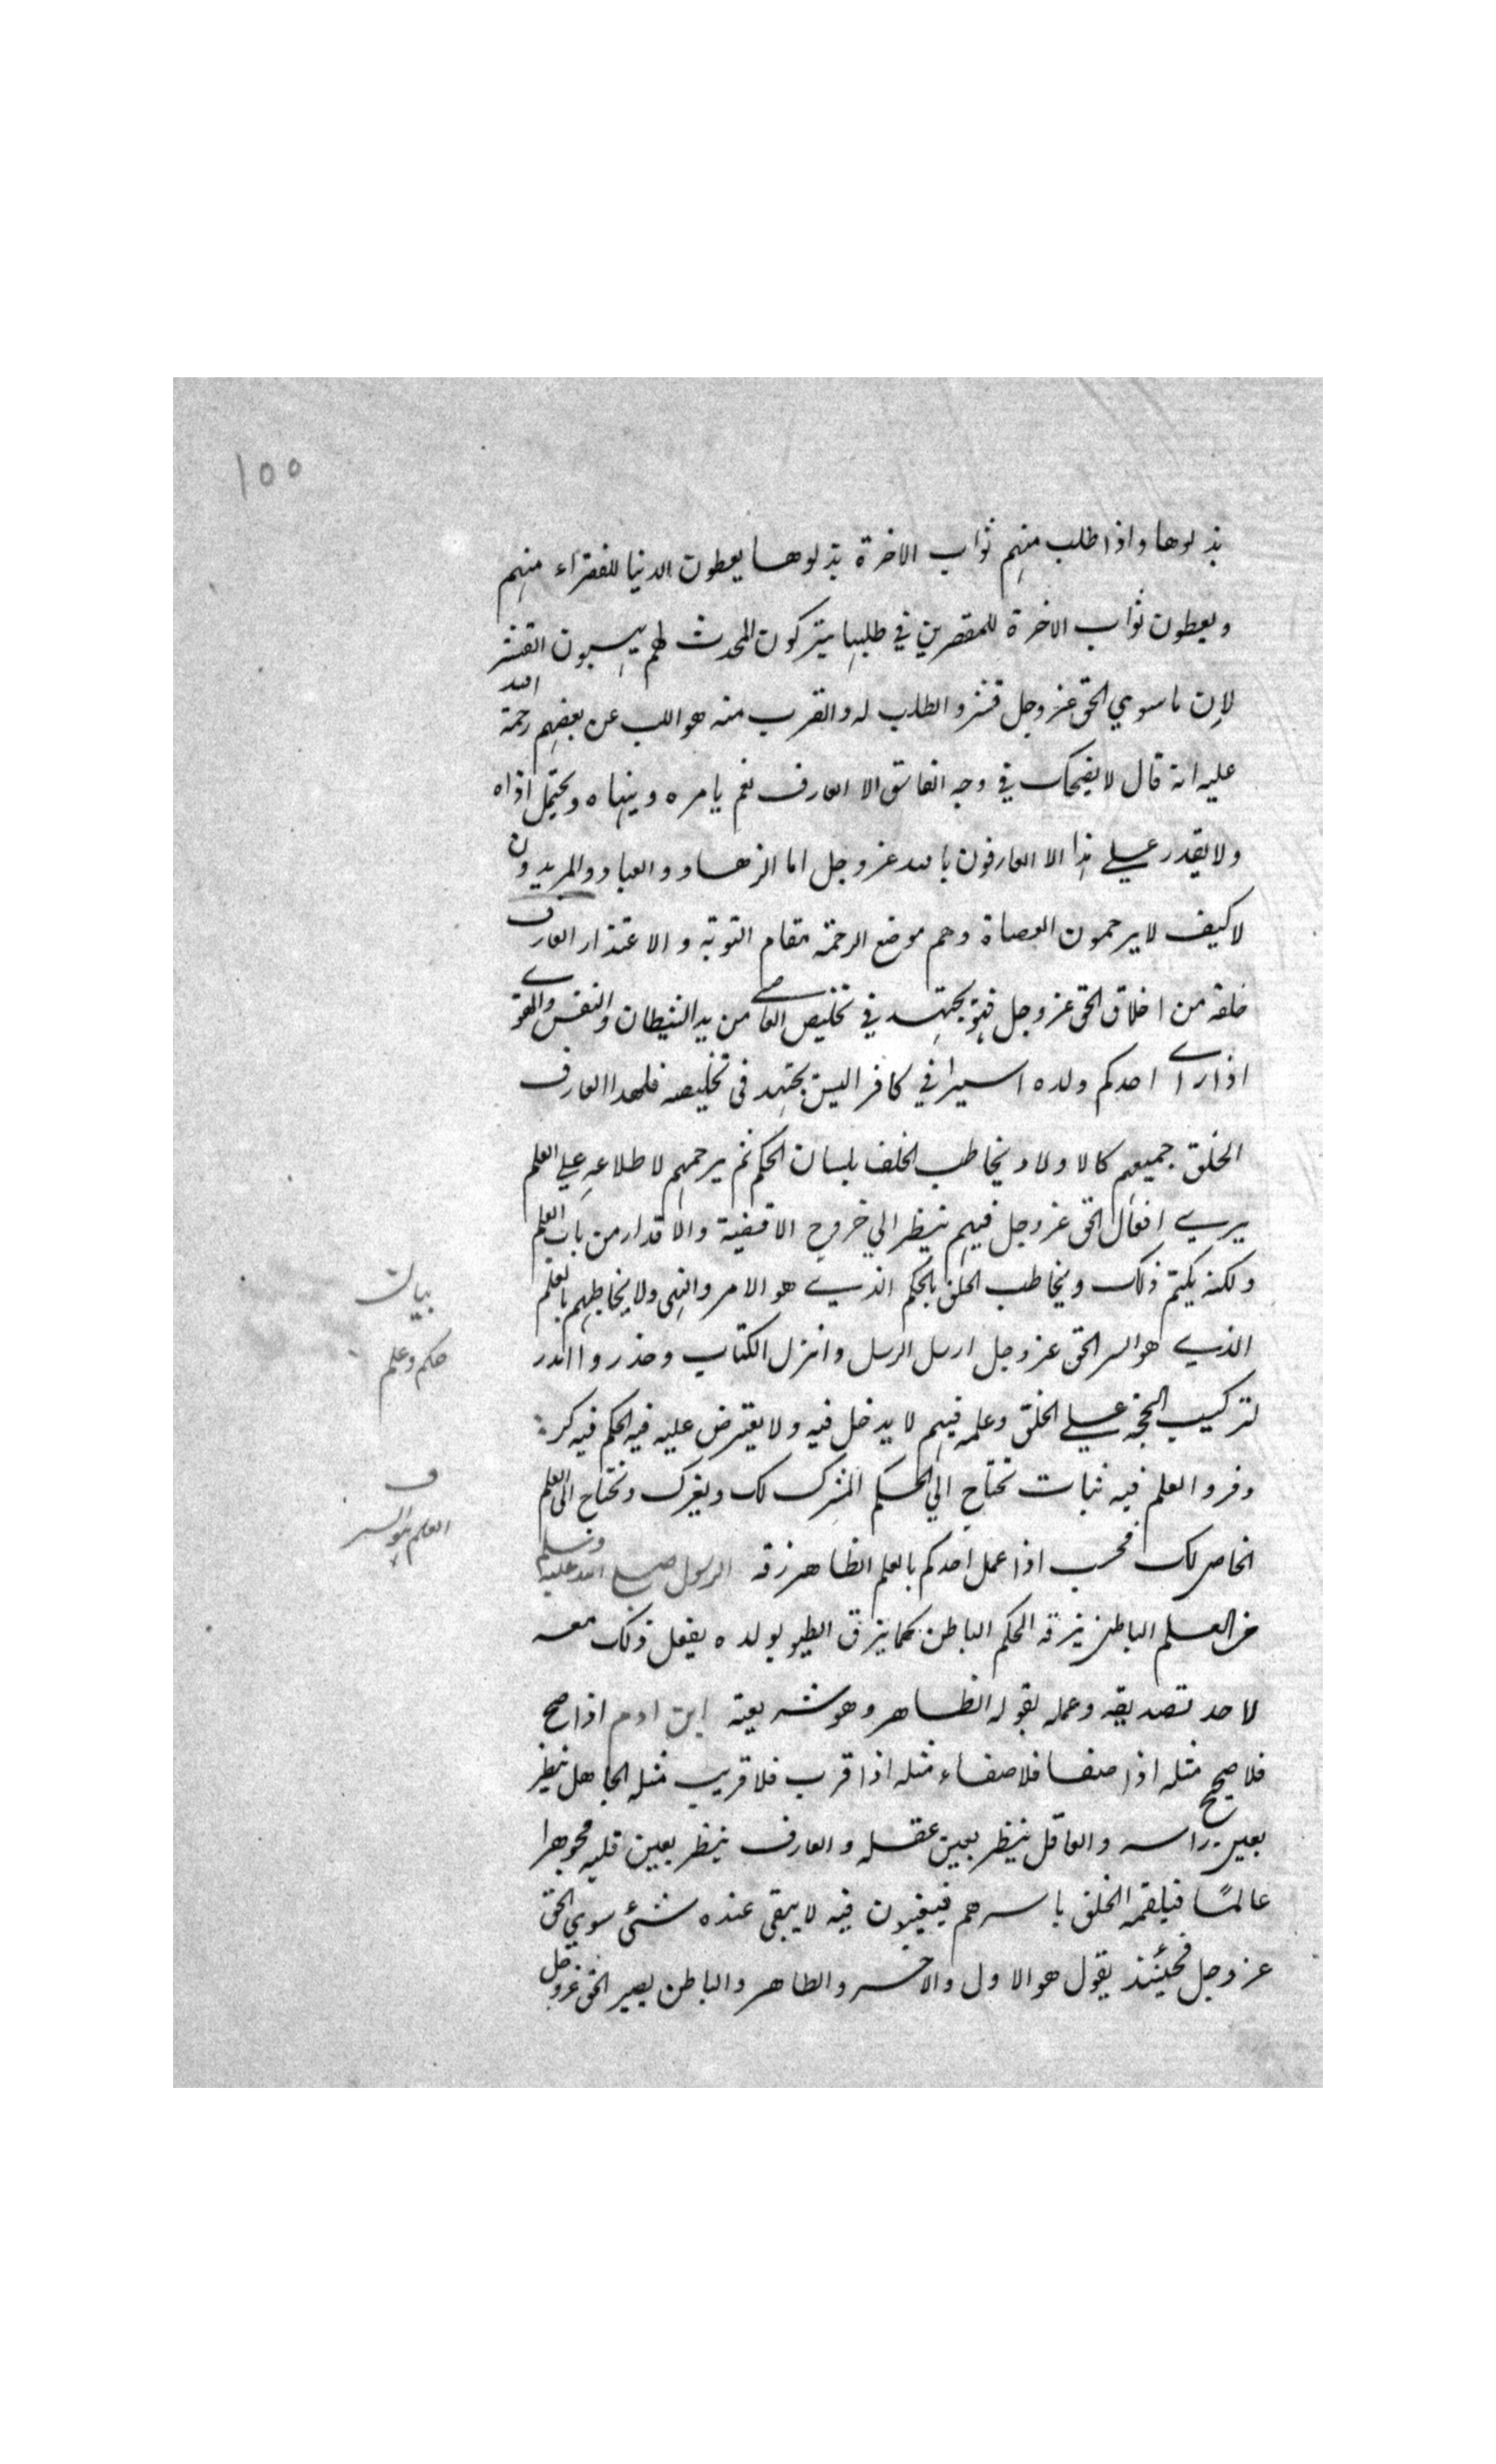 ١٥٥
بذلوها واذا طلب منهم ثواب الاخرة بذلوها يعطون الدنيا للفقراء منهم
ويعطون ثواب الاخرة للمقصرين في طلبها يتركون المحدث لهم يسبون القشر
لان ما سوي الحق عز وجل قشر والطلب له والقرب منه هو اللب عن بعضهم رحمة الله
عليه انه قال لا يضحك في وجه الفاسق الا العارف نعم يامره وينهاه ويحتمل اذاه
ولا يقدر علي هذا الا العارفون بالله عز وجل اما الزهاد والعباد والمريدون
لا كيف لا يرحمون العصاة وهم موضع الرحمة مقام التوبة والاعتذار العارف
خلقه من اخلاق الحق عز وجل فهو يجتهد في تخليص العاصي من يد الشيطان والنفس والهوي
اذا راي احدكم ولده اسيرا في كافر اليس يجتهد في تخليصه فلهذا العارف
الخلق جميعهم كالاولاد يخاطب الخلق بلسان الحكم ثم يرحمهم لاطلاعه علي العلم
يري افعال الحق عز وجل فيهم ينظر الي خروج الاقضية والاقدار من باب العلم
ولكنه يكتم ذلك ويخاطب الخلق بالحكم الذي هو الامر والنهي ولا يخاطبهم بالعلم
الذي هو السر الحق عز وجل ارسل الرسل وانزل الكتاب وحذر وانذر
لتركيب الحجة علي الخلق وعلمه فيهم لا يدخل فيه ولا يعترض عليه فيه الحكم فيه كر
وفر والعلم فيه ثبات تحتاج الي الحكم المشرك لك ويغرك وتحتاج الي العلم
الخاص لك فحسب اذا عمل احدكم بالعلم الظاهر زقه الرسول صلي الله عليه وسلم
من العلم الباطن يزقه الحكم الباطن كما يزق الطيور ولده يفعل ذلك معه
لاحد تصديقه وعمله بقوله الظاهر وهو شريعته ابن ادم اذا صح
فلا صحيح مثله اذا صفا فلا صفاء مثله اذا قرب فلا قريب مثله الجاهل ينظر
بعين راسه والعاقل ينظر بعين عقله والعارف ينظر بعين قلبه جوهرا
عالمًا فيلقمه الخلق باسرهم فيغيبون فيه لا يبقى عنده شئ سوي الحق
عز وجل فحينئذ يقول هو الاول والاخر والظاهر والباطن يصير الحق عز وجل
بيان
حكم وعلم
ف
العلم هو السر